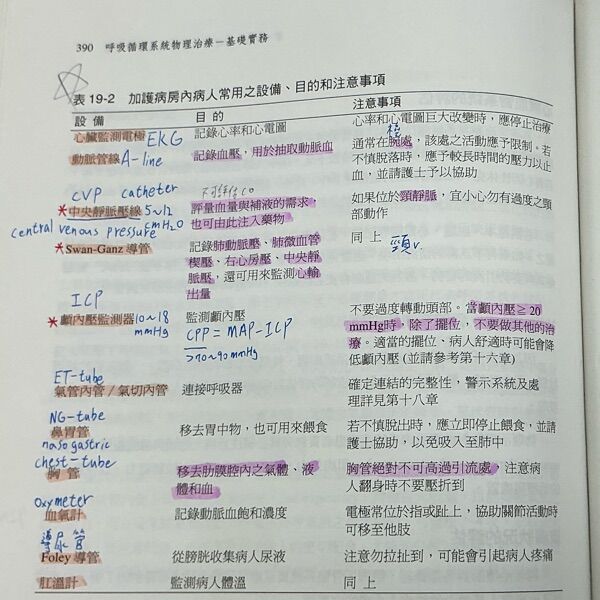 390 呼吸循環系統物理治療－基礎實務
表 19-2 加護病房內病人常用之設備、目的和注意事項
設備 目的 注意事項
心臟監測電極 EKG 記錄心率和心電圖 心率和心電圖巨大改變時，應停止治療
動脈管線 A-line 記錄血壓，用於抽取動脈血 通常在腕處，該處之活動應予限制。若
不慎脫落時，應予較長時間的壓力以止
血，並請護士予以協助
CVP catheter
★中央靜脈壓線 5~12 cmH2O 評量血量與補液的需求， 如果位於頸靜脈，宜小心勿有過度之頸
central venous pressure 也可由此注入藥物 部動作
★Swan-Ganz 導管 記錄肺動脈壓、肺微血管 同上 頸v.
楔壓、右心房壓、中央靜
脈壓，還可用來監測心輸
出量
ICP
★顱內壓監測器 10~18 mmHg 監測顱內壓 不要過度轉動頭部。當顱內壓≥20
CPP = MAP-ICP mmHg時，除了擺位，不要做其他的治
>70~90mmHg 療。適當的擺位、病人舒適時可能會降
低顱內壓 (並請參考第十六章)
ET-tube
氣管內管／氣切內管 連接呼吸器 確定連結的完整性，警示系統及處
理詳見第十八章
NG-tube
鼻胃管 移去胃中物，也可用來餵食 若不慎脫出時，應立即停止餵食，並請
nasogastric 護士協助，以免吸入至肺中
chest-tube
胸管 移去肋膜腔內之氣體、液 胸管絕對不可高過引流處，注意病
體和血 人翻身時不要壓折到
oxymeter
血氧計 記錄動脈血飽和濃度 電極常位於指或趾上，協助關節活動時
可移至他肢
導尿管
Foley 導管 從膀胱收集病人尿液 注意勿拉扯到，可能會引起病人疼痛
肛溫計 監測病人體溫 同上